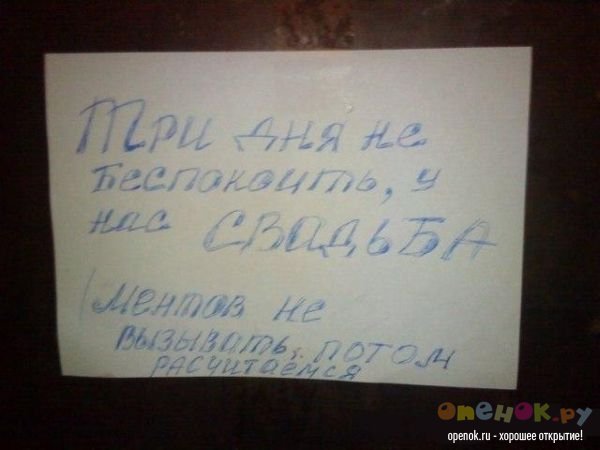 Три дня не
беспокоить, у
нас СВАДЬБА
Ментов не
вызывать, потом
расчитаемся
опёнок.ру
openok.ru - хорошее открытие!